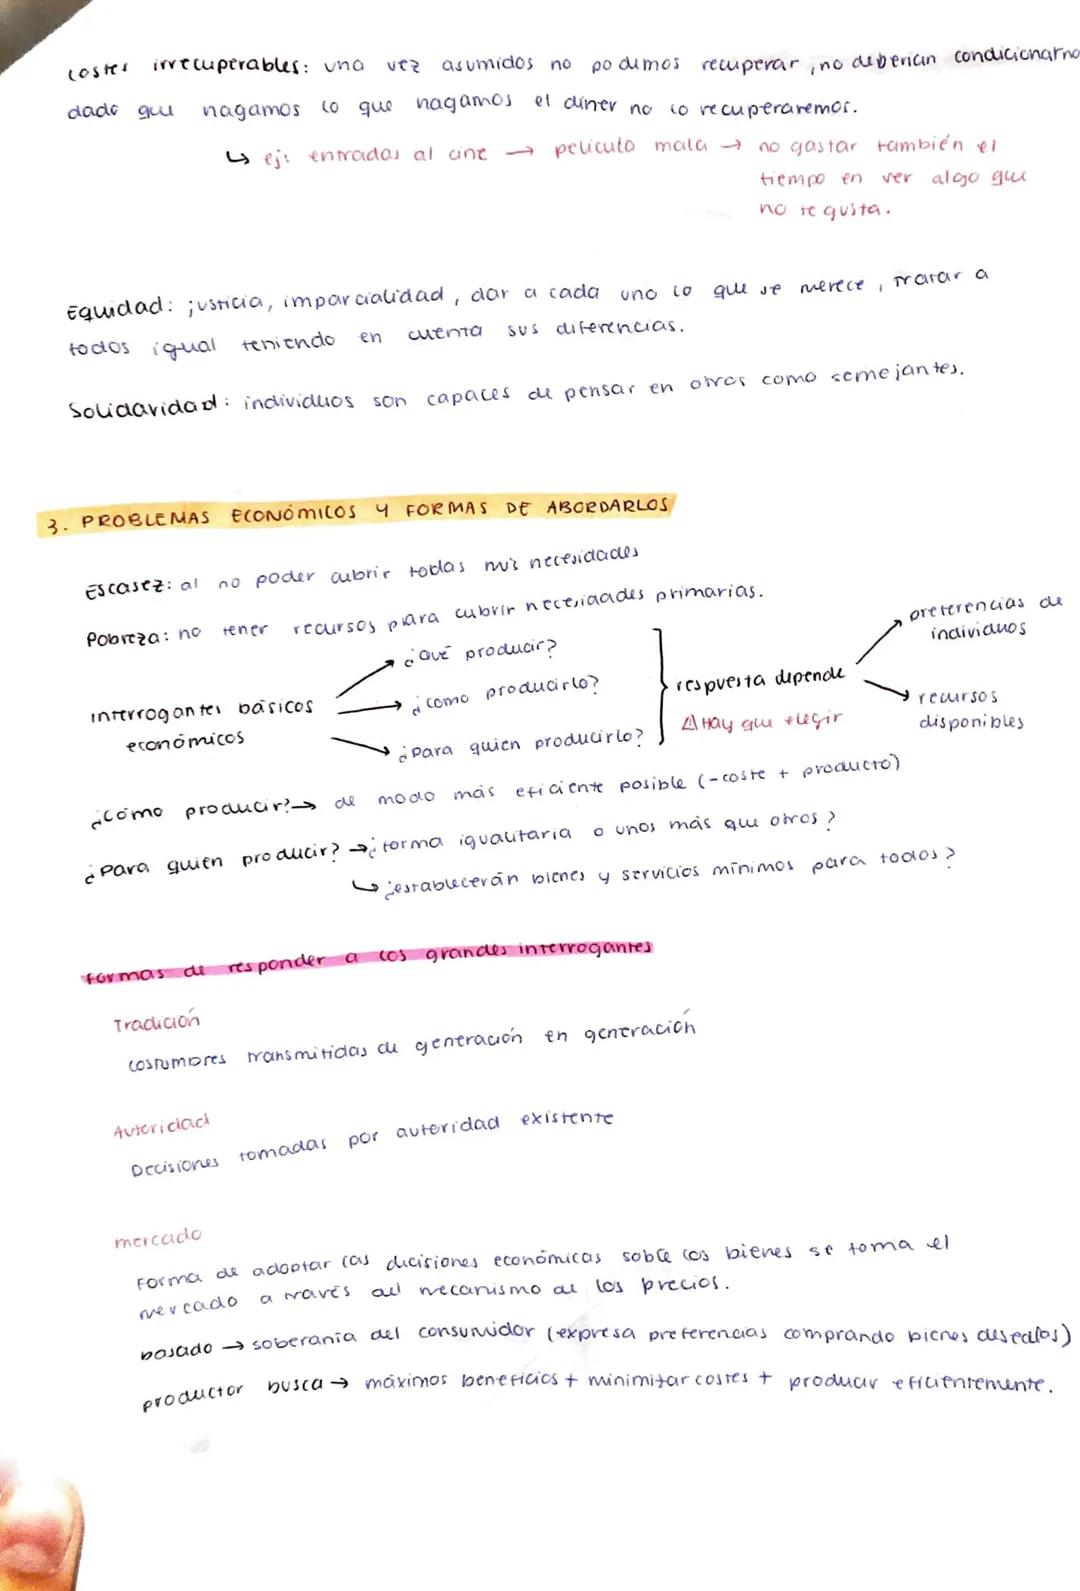 costes irrecuperables: una vez asumidos no podemos recuperar, no deberian condicionarno
dado que hagamos lo que hagamos el diner no lo recuperaremos.
↳ ej: entradas al cine → pelicula mala → no gastar también el
tiempo en ver algo que
no te gusta.
Equidad: justicia, imparcialidad, dar a cada uno lo que se merece, tratar a
todos igual teniendo en cuenta sus diferencias.
Solidaridad: individuos son capaces de pensar en otros como semejantes.
3. PROBLEMAS ECONÓMICOS Y FORMAS DE ABORDARLOS
Escasez: al no poder cubrir todas mis necesidades
Pobreza: no tener recursos para cubrir necesidades primarias.
interrogantes básicos
económicos
→ ¿Qué producir?
→ ¿como producirlo?
→ ¿Para quien producirlo?
respuesta depende
⚠ Hay que elegir
→ preferencias de
individuos
→ recursos
disponibles
¿cómo producir? → de modo más eficiente posible (-coste + producto)
¿Para quién producir? → ¿forma igualitaria o unos más que otros?
↳ ¿establecerán bienes y servicios mínimos para todos?
Formas de responder a los grandes interrogantes
Tradición
costumbres transmitidas de generación en generación
Autoridad
Decisiones tomadas por autoridad existente
mercado
Forma de adoptar las decisiones económicas sobre los bienes se toma el
mercado a través del mecanismo de los precios.
basado → soberanía del consumidor (expresa preferencias comprando bienes deseados)
productor busca → máximos beneficios + minimizar costes + producir eficientemente.